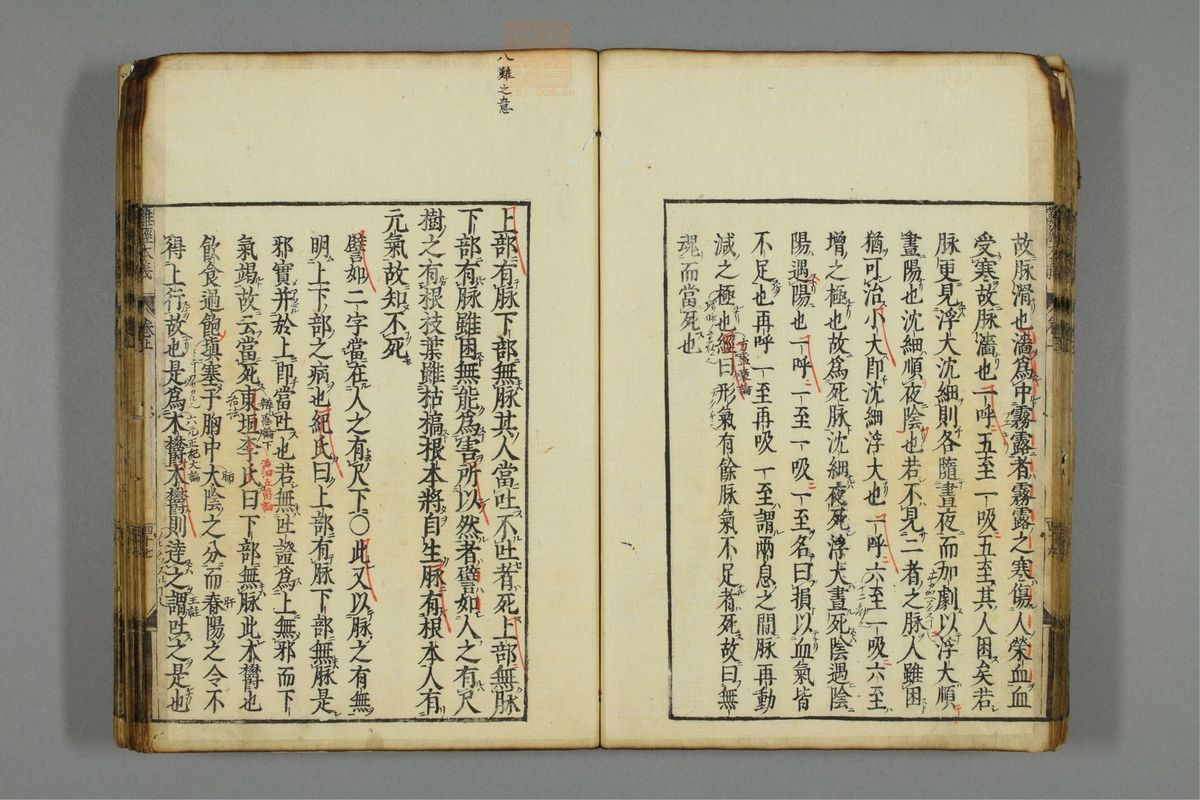 故脉滑也濇爲中霧露者霧露之寒傷人榮血血
受寒故脉濇也一呼五至一吸五至其人困矣若
脉更見浮大沈細則各隨晝夜而加劇以浮大順
晝陽也沈細順夜陰也若不見二者之脉人雖困
猶可治小大即沈細浮大也一呼六至一吸六至
增之極也故爲死脉沈細夜死浮大晝死陰遇陰
陽遇陽也一呼一至一吸一至名曰損以血氣皆
不足也再呼一至再吸一至謂兩息之間脉再動
減之極也經曰形氣有餘脉氣不足者死故曰無
魂而當死也
方盛衰論
八難之意
上部有脉下部無脉其人當吐不吐者死上部無脉
下部有脉雖困無能爲害所以然者譬如人之有尺
樹之有根枝葉雖枯槁根本將自生脉有根本人有
元氣故知不死
譬如二字當在人之有尺下○此又以脉之有無
明上下部之病也紀氏曰上部有脉下部無脉是
邪實并於上即當吐也若無吐證爲上無邪而下
氣竭故云當死東垣李氏曰下部無脉此木鬱也
飲食過飽塡塞于胸中太陰之分而春陽之令不
得上行故也是爲木鬱木鬱則達之謂吐之是也
辨惑論下
治法
肺
肝
王註
六元正紀大論
難經本義